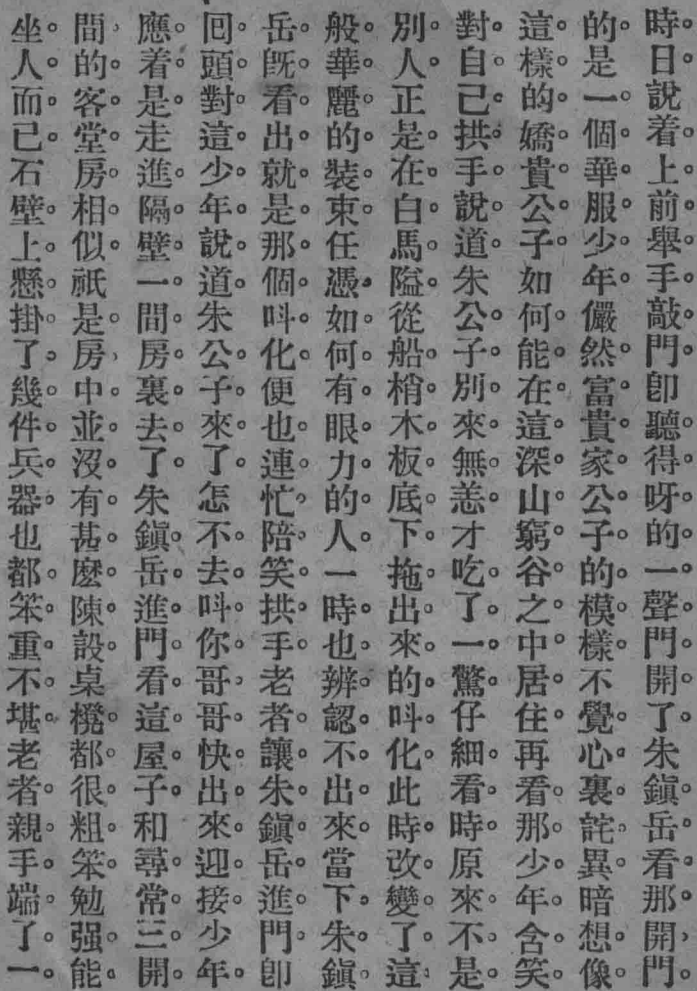 時日說着上前舉手敲門卽聽得呀的一聲門開了朱鎭岳看那開門
的是一個華服少年儼然富貴家公子的模樣不覺心裏詫異暗想像
這樣的嬌貴公子如何能在這深山窮谷之中居住再看那少年含笑
對自己拱手說道朱公子別來無恙才吃了一驚仔細看時原來不是
別人正是在白馬隘從船梢木板底下拖出來的叫化此時改變了這
般華麗的裝束任憑如何有眼力的人一時也辨認不出來當下朱鎭
岳旣看出就是那個叫化便也連忙陪笑拱手老者讓朱鎭岳進門卽
回頭對這少年說道朱公子來了怎不去叫你哥哥快出來迎接少年
應着是走進隔壁一間房裏去了朱鎭岳進門看這屋子和尋常三開
間的客堂房相似祇是房中並沒有甚麼陳設桌櫈都很粗笨勉强能
坐人而已石壁上懸掛了幾件兵器也都笨重不堪老者親手端了一